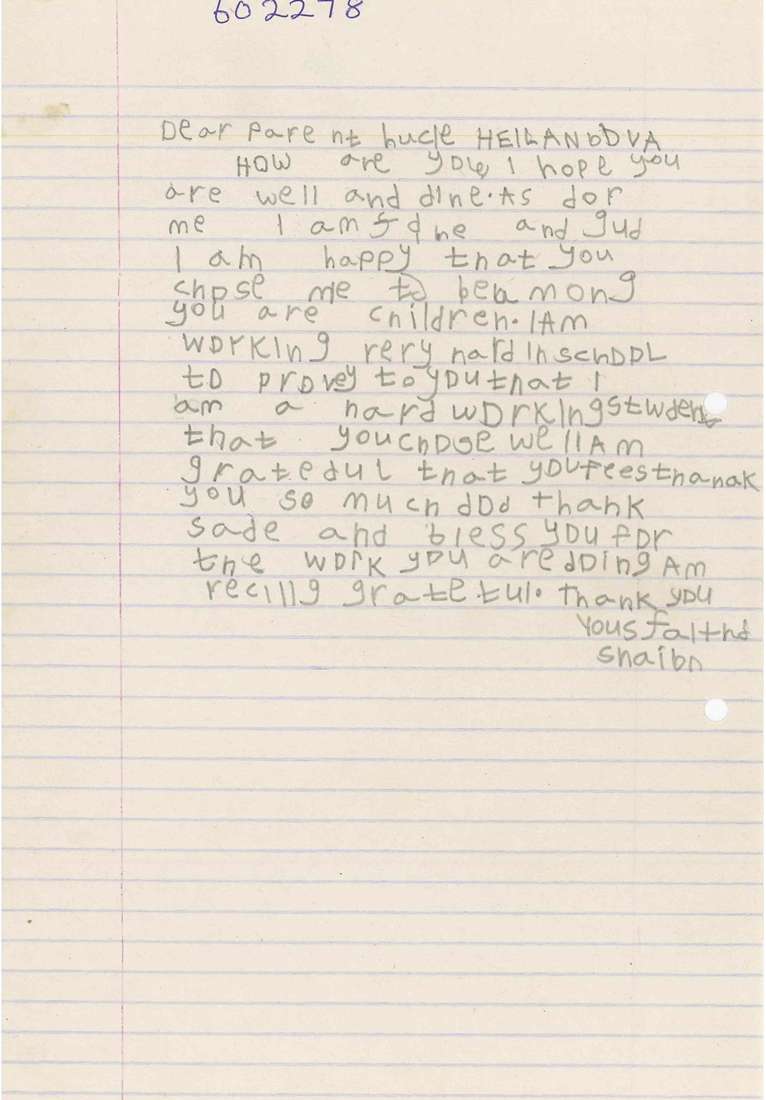 602278
Dear Parent hucle HEILANDOVA
HOW are you, I hope you
are well and dine. As dor
me I am fine and gud
I am happy that you
chose me to beamong
you are children. I AM
WORKING rery hard in school
to provey to you that I
am a hard working student
that you chose we ll AM
gratedul that you feesthanak
you so much dod thank
sade and bless you for
the work you are doing AM
recilly grate tul. thank you
yous faithd
shaibn